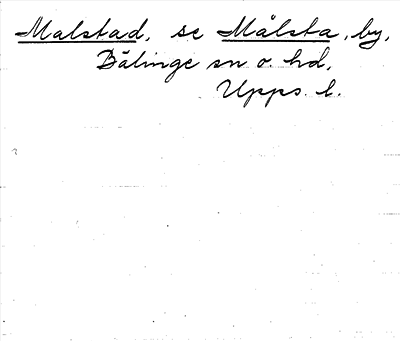 Malstad, se Målsta, by,
Bälinge sn o. hd,
Upps. l.